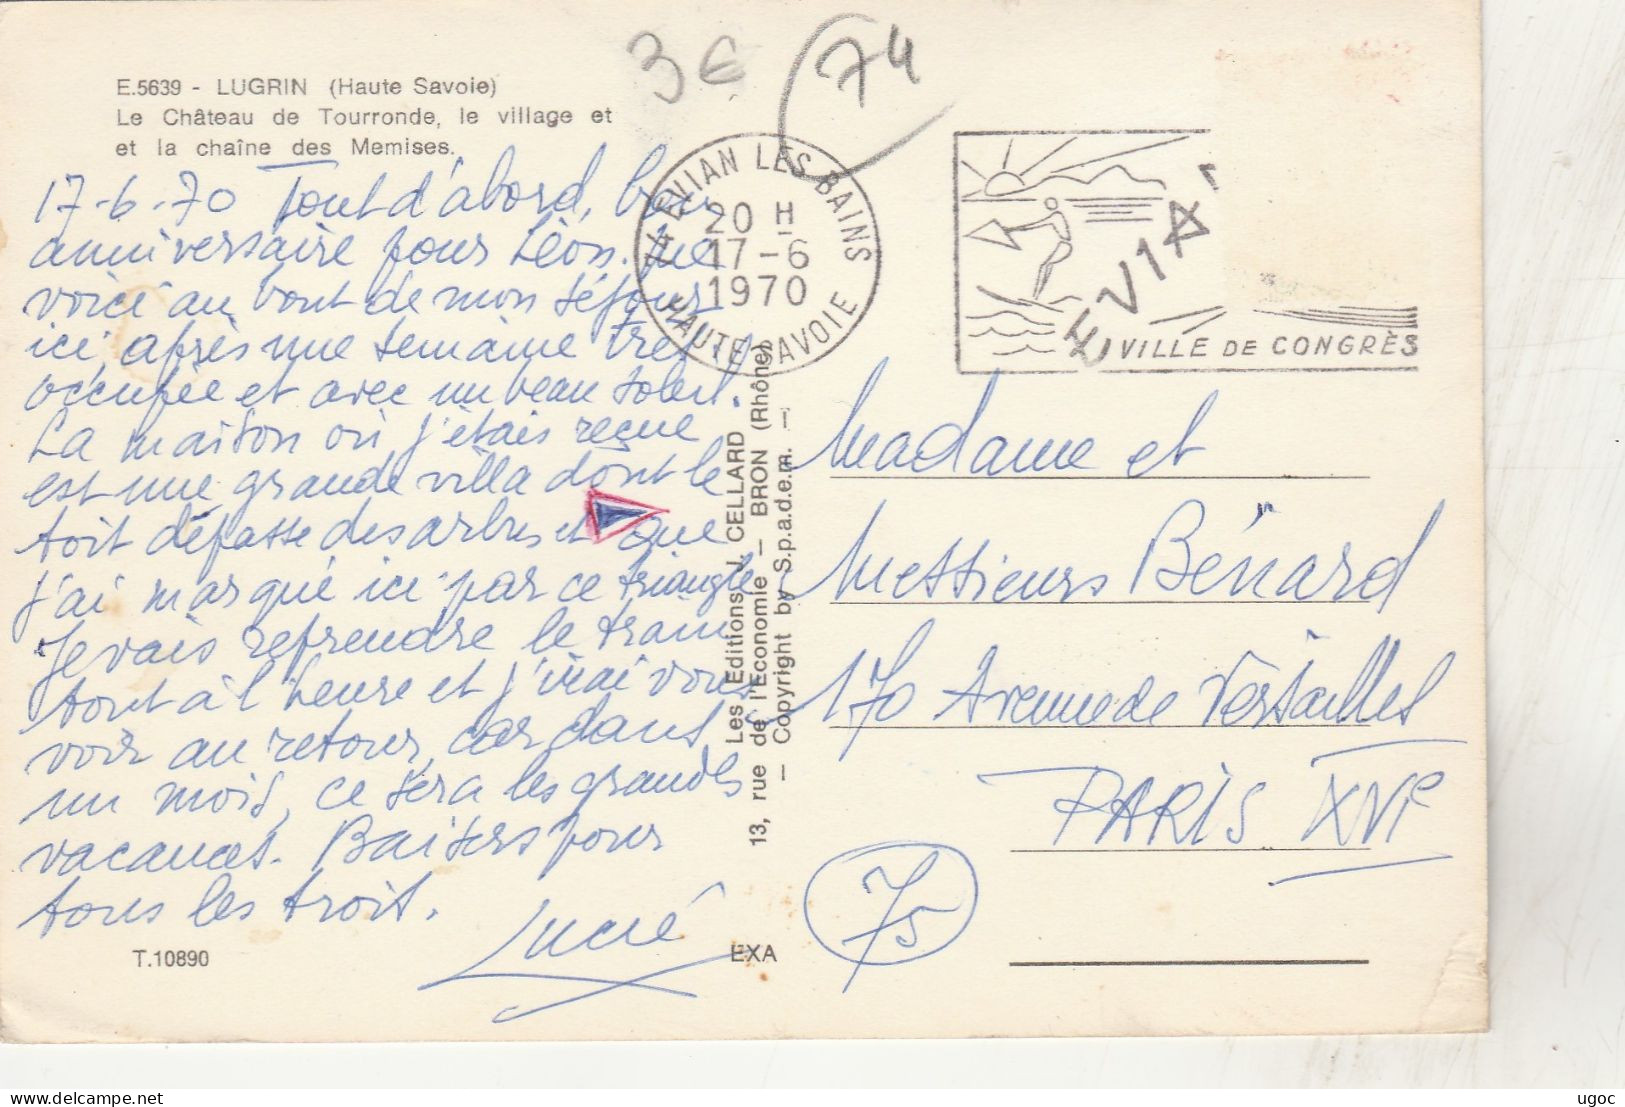 3€
74
E.5639 - LUGRIN (Haute Savoie)
Le Château de Tourronde, le village et
et la chaîne des Memises.
74 EVIAN LES BAINS
20 H
17-6
1970
HAUTE SAVOIE
EVIAN
VILLE DE CONGRÈS
17-6-70 Tout d'abord, bon
anniversaire pour Léon. Me
voici au bout de mon séjour
ici, après une semaine très
occupée et avec un beau soleil.
La maison où j'étais reçue
est une grande villa dont le
toit dépasse des arbres et que
j'ai marqué ici par ce triangle
Je vais reprendre le train
tout à l'heure et j'irai vous
voir au retour, car dans
un mois, ce sera les grandes
vacances. Baisers pour
tous les trois.
T.10890
EXA
Les Editions J. CELLARD
13, rue de l'Economie - BRON (Rhône)
- Copyright by S.p.a.d.e.m. -
Madame et
Messieurs Bénard
170 Avenue de Versailles
PARIS XVIe
75
delcampe.net
ugoc